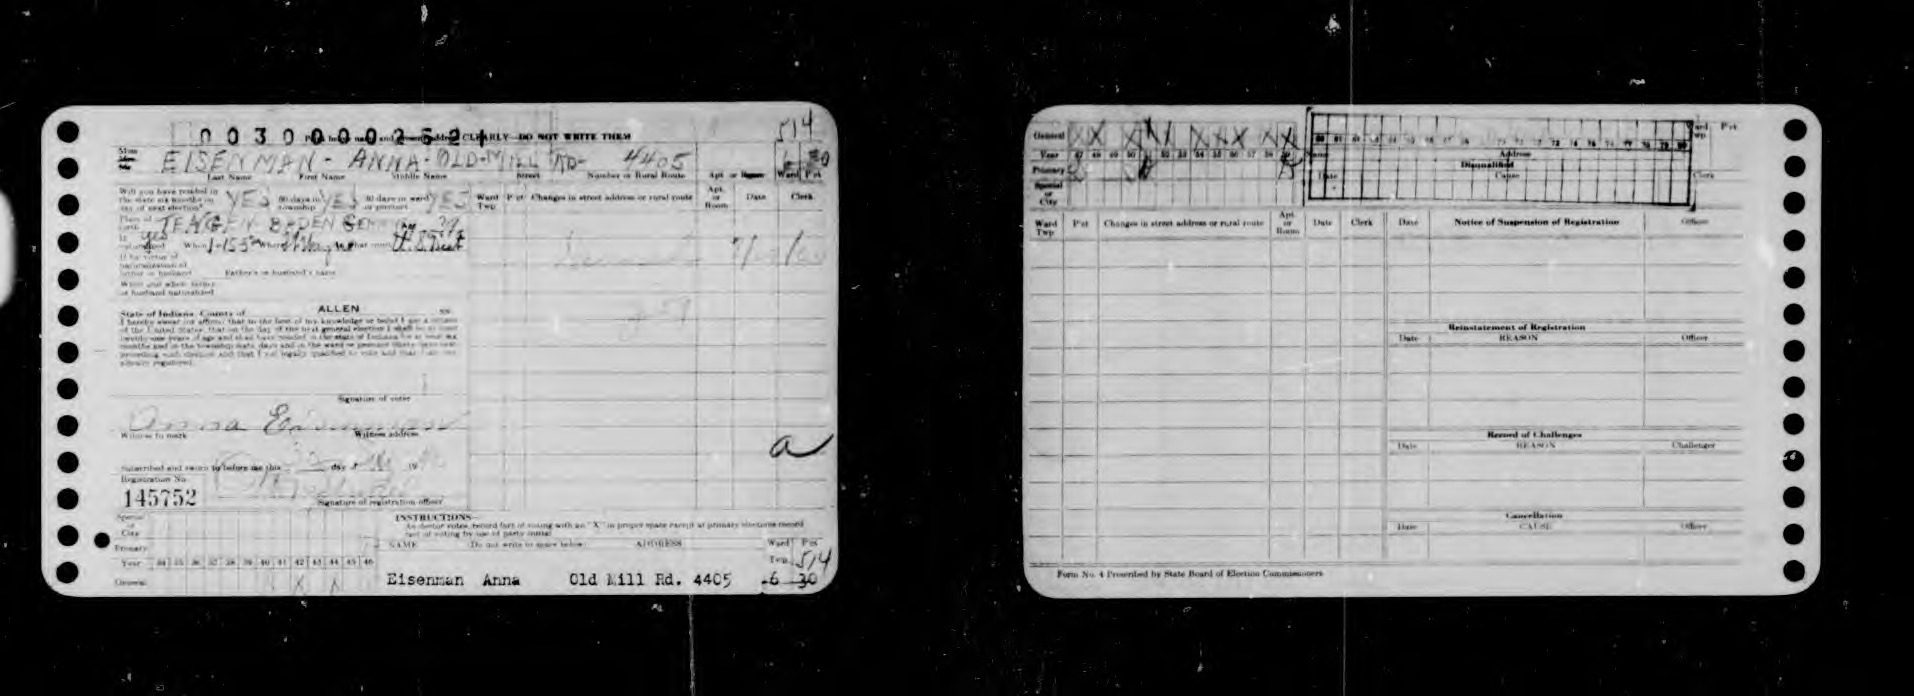 0030000252
CLEARLY—DO NOT WRITE THEM
514
EISENMAN - ANNA - OLD-MILL RD- 4405
Last Name First Name Middle Name Street Number or Rural Route Apt. or Room Ward Pct
Will you have resided in the state six months on day of next election? YES 60 days in township YES 30 days in ward or precinct YES
Ward Twp Pct Changes in street address or rural route Apt. or Room Date Clerk
Place of birth TENGEN BADEN GERMANY
If naturalized yes When Where what court
If by virtue of naturalization of father or husband Father's or husband's name
When and where father or husband naturalized
State of Indiana, County of ALLEN ss:
I hereby swear (or affirm) that to the best of my knowledge or belief I am a citizen
of the United States, that on the day of the next general election I shall be at least
twenty-one years of age and shall have resided in the state of Indiana for at least six
months and in the township sixty days and in the ward or precinct thirty days next
preceding such election and that I am legally qualified to vote and that I am not
already registered.
Signature of voter
Anna Eisenman
Witness to mark Witness address
a
Subscribed and sworn to before me this day of 19
Registration No.
145752
Signature of registration officer
INSTRUCTIONS—
An elector votes, record fact of voting with an "X" in proper space except at primary elections record
fact of voting by use of party initial
Special or City
Primary
Year 34 35 36 37 38 39 40 41 42 43 44 45 46
General X X
NAME (Do not write in space below) ADDRESS Ward Pct
Twp 514
Eisenman Anna Old Mill Rd. 4405 6 30
General X X X X X X X X
Year 47 48 49 50 51 52 53 54 55 56 57 58 59
Primary
Special or City
Name Address Ward Twp Pct
Disqualified
Date Cause Clerk
Ward Twp Pct Changes in street address or rural route Apt. or Room Date Clerk
Date Notice of Suspension of Registration Officer
Reinstatement of Registration
Date REASON Officer
Record of Challenges
Date REASON Challenger
Cancellation
Date CAUSE Officer
Form No. 4 Prescribed by State Board of Election Commissioners